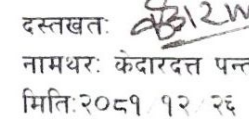 दस्तखतः
नामथरः केदारदत्त पन्त
मितिः२०८१ १२ २६